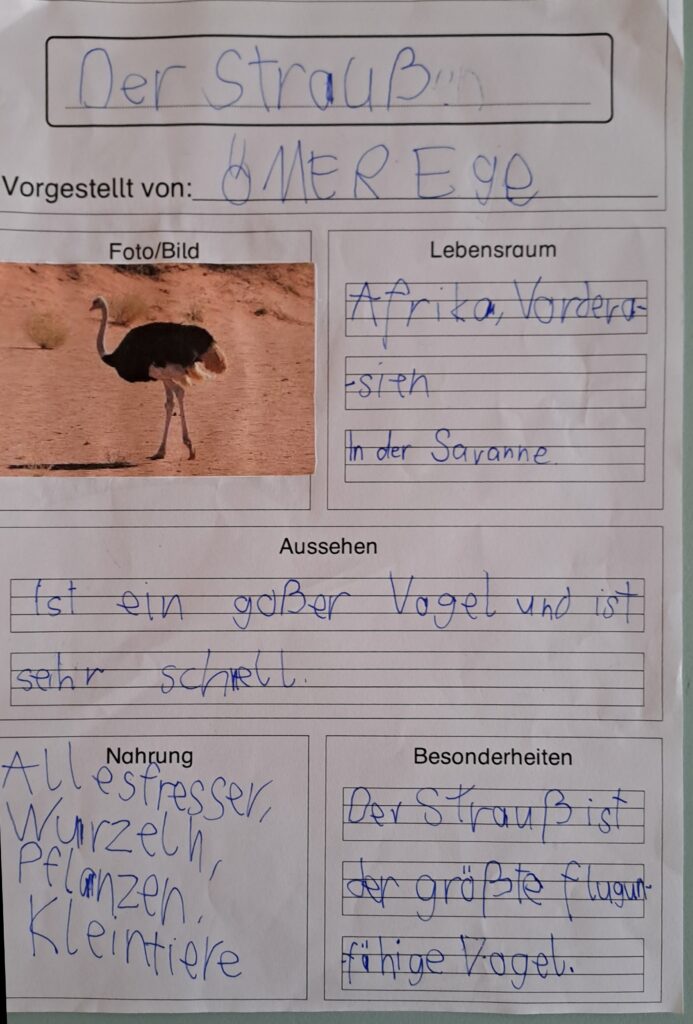 Der Strauß
Vorgestellt von: ÖMER Ege
Foto/Bild
Lebensraum
Afrika, Vordera-
-sien
In der Savanne.
Aussehen
Ist ein goßer Vogel und ist
sehr schnell.
Nahrung
Allesfresser,
Wurzeln,
Pflanzen,
Kleintiere
Besonderheiten
Der Strauß ist
der größte flugun-
fähige Vogel.